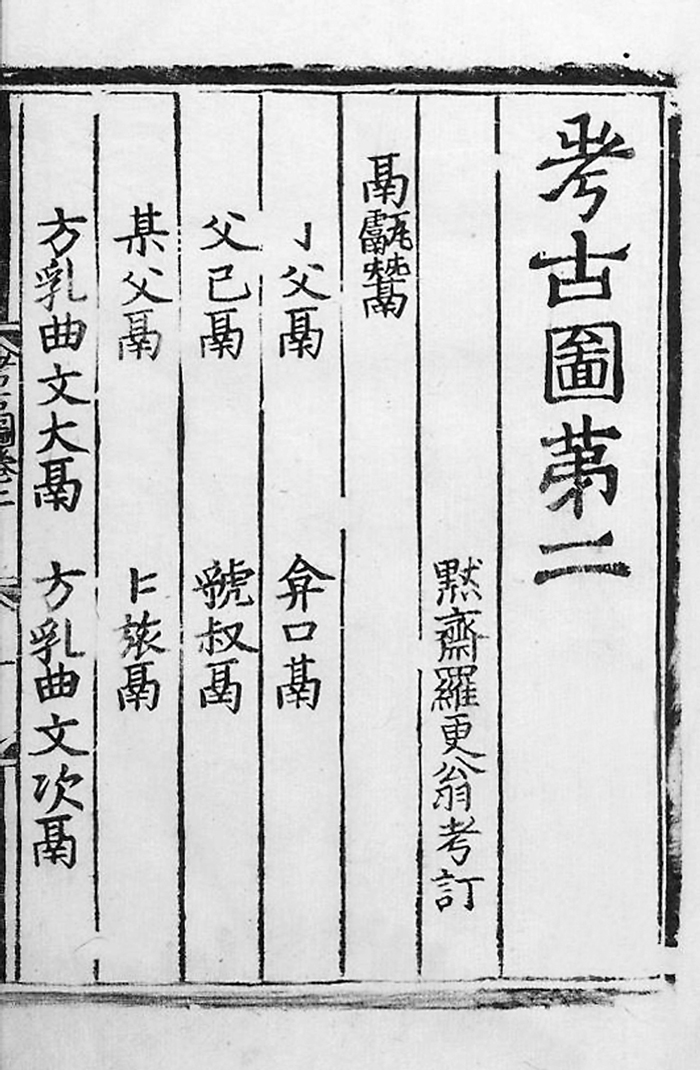 考古圖苐二
黙齋羅更翁考訂
鬲甗鬵
父鬲　弇口鬲
父己鬲　虢叔鬲
某父鬲　鬲
方乳曲文大鬲　方乳曲文次鬲
考古圖卷二